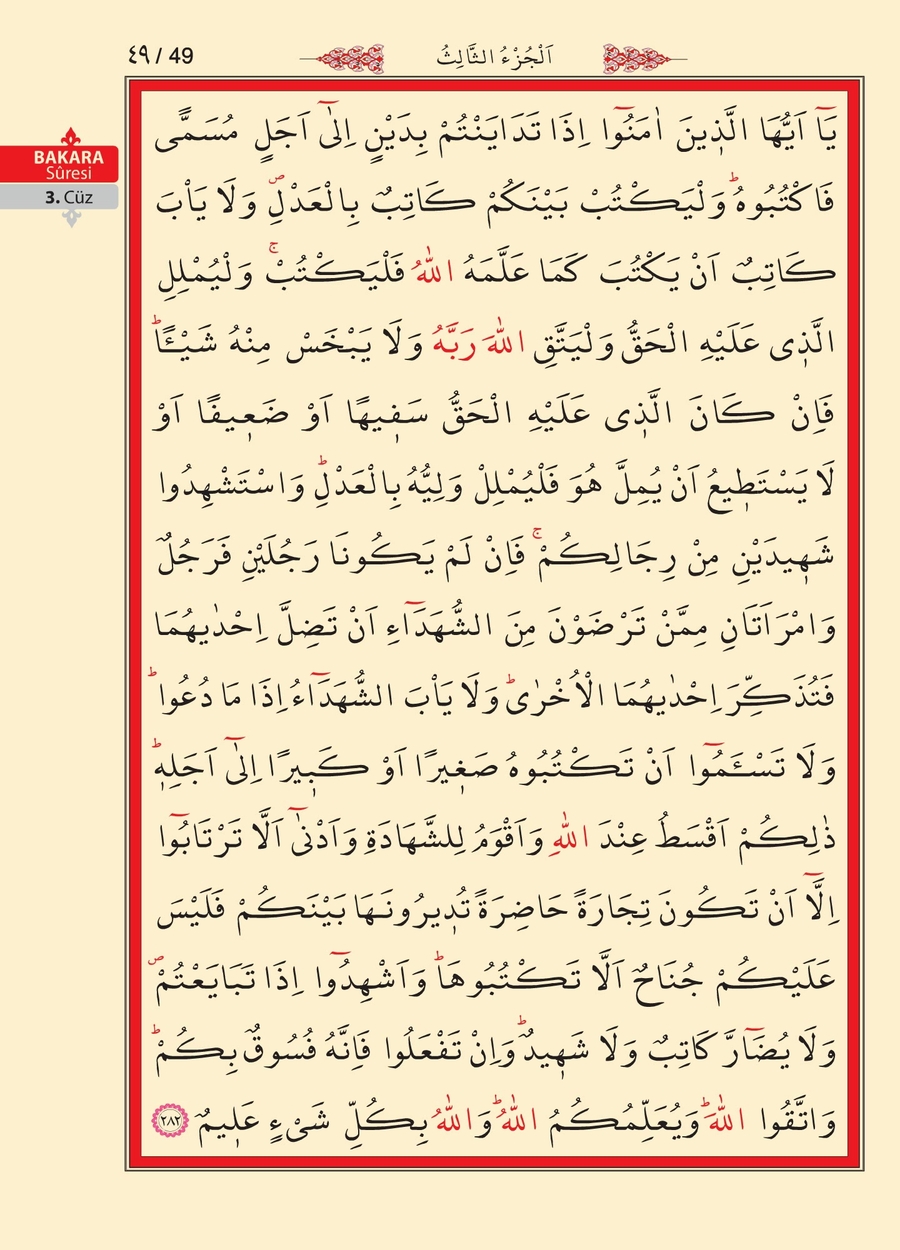 ٤٩ / 49
اَلْجُزْءُ الثَّالِثُ
BAKARA
Sûresi
3. Cüz
يَٓا اَيُّهَا الَّذ۪ينَ اٰمَنُٓوا اِذَا تَدَايَنْتُمْ بِدَيْنٍ اِلٰٓى اَجَلٍ مُسَمًّى
فَاكْتُبُوهُۜ وَلْيَكْتُبْ بَيْنَكُمْ كَاتِبٌ بِالْعَدْلِۖ وَلَا يَاْبَ
كَاتِبٌ اَنْ يَكْتُبَ كَمَا عَلَّمَهُ اللّٰهُ فَلْيَكْتُبْۚ وَلْيُمْلِلِ
الَّذ۪ى عَلَيْهِ الْحَقُّ وَلْيَتَّقِ اللّٰهَ رَبَّهُ وَلَا يَبْخَسْ مِنْهُ شَيْـًٔاۜ
فَاِنْ كَانَ الَّذ۪ى عَلَيْهِ الْحَقُّ سَف۪يهًا اَوْ ضَع۪يفًا اَوْ
لَا يَسْتَط۪يعُ اَنْ يُمِلَّ هُوَ فَلْيُمْلِلْ وَلِيُّهُ بِالْعَدْلِۜ وَاسْتَشْهِدُوا
شَه۪يدَيْنِ مِنْ رِجَالِكُمْۚ فَاِنْ لَمْ يَكُونَا رَجُلَيْنِ فَرَجُلٌ
وَامْرَاَتَانِ مِمَّنْ تَرْضَوْنَ مِنَ الشُّهَدَٓاءِ اَنْ تَضِلَّ اِحْدٰيهُمَا
فَتُذَكِّرَ اِحْدٰيهُمَا الْاُخْرٰىۜ وَلَا يَاْبَ الشُّهَدَٓاءُ اِذَا مَا دُعُواۜ
وَلَا تَسْـَٔمُٓوا اَنْ تَكْتُبُوهُ صَغ۪يرًا اَوْ كَب۪يرًا اِلٰٓى اَجَلِه۪ۜ
ذٰلِكُمْ اَقْسَطُ عِنْدَ اللّٰهِ وَاَقْوَمُ لِلشَّهَادَةِ وَاَدْنٰٓى اَلَّا تَرْتَابُٓوا
اِلَّٓا اَنْ تَكُونَ تِجَارَةً حَاضِرَةً تُد۪يرُونَهَا بَيْنَكُمْ فَلَيْسَ
عَلَيْكُمْ جُنَاحٌ اَلَّا تَكْتُبُوهَاۜ وَاَشْهِدُٓوا اِذَا تَبَايَعْتُمْۖ
وَلَا يُضَٓارَّ كَاتِبٌ وَلَا شَه۪يدٌۜ وَاِنْ تَفْعَلُوا فَاِنَّهُ فُسُوقٌ بِكُمْۜ
وَاتَّقُوا اللّٰهَۜ وَيُعَلِّمُكُمُ اللّٰهُۜ وَاللّٰهُ بِكُلِّ شَىْءٍ عَل۪يمٌ ﴿٢٨٢﴾